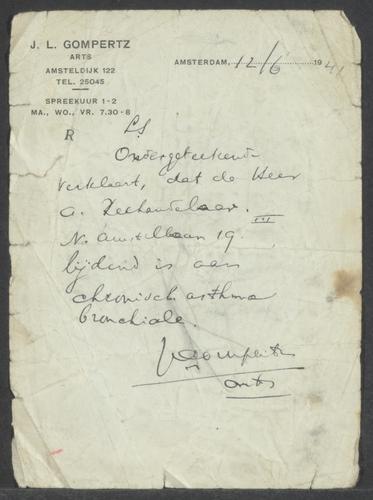 J. L. GOMPERTZ
ARTS
AMSTELDIJK 122
TEL. 25045
SPREEKUUR 1-2
MA., WO., VR. 7.30-8
AMSTERDAM, 12/6 1941
R
LS
Ondergeteekende
verklaart, dat de Heer
A. Zeehandelaar.
N. Amstellaan 19 III
lijdend is aan
chronisch asthma
bronchiale.
JLGompertz
arts